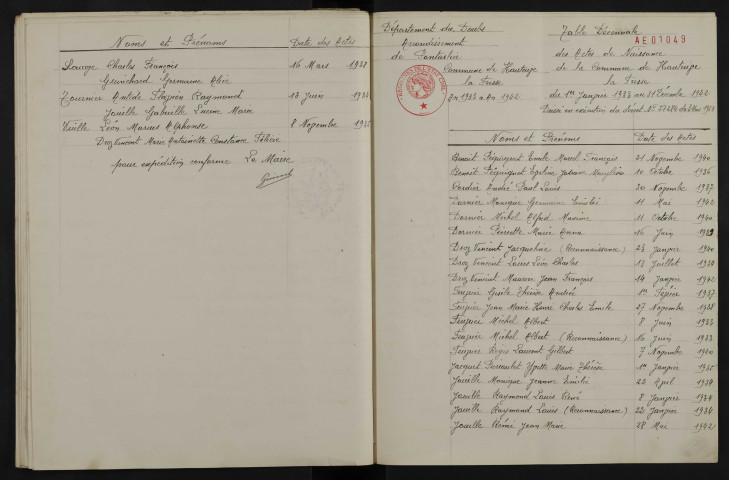 Noms et Prénoms Date des Actes
Charles François 16 Mars 1938
Guinchard Germaine
Tournier Raymond 13 Juin
Jouille Gabrielle Lucine Marie
Vieille Léon Marius Alphonse 8 Novembre
Droz Vincent Marie Antoinette Constance
pour expédition conforme Le Maire
Département du Doubs
Arrondissement
de Pontarlier
Commune de Hauterive
la Fresse
An 1933 à An 1942
Table Décennale
AE01049
des Actes de Naissance
de la Commune de Hauterive
la Fresse
du 1er Janvier 1933 au 31 Décembre 1942
Noms et Prénoms Date des Actes
Benoit Emile Marcel François 21 Novembre 1940
Benoit 10 Octobre 1936
Cordier André Paul Louis 20 Novembre 1937
Dornier Monique Germaine 11 Mai 1942
Dornier Michel Alfred Maxime 11 Octobre 1940
Dornier Pierrette Marie Anna 16 Juin
Droz Vincent Jacqueline (Reconnaissance) 23 Janvier 1940
Droz Vincent Louis Léon Charles 13 Juillet
Droz Vincent Maurice Jean François 14 Janvier 1942
Faivre Gisèle Thérèse Andrée 1er Février 1937
Faivre Jean Marie Henri Charles Emile 27 Novembre 1938
Faivre Michel Albert 8 Juin 1933
Faivre Michel Albert (Reconnaissance) 16 Juin 1933
Faivre Régis Laurent Gilbert 7 Novembre 1940
Jacquet Yvette Marie Thérèse 1er Janvier 1935
Jouille Monique Jeanne 22 Avril 1934
Jouille Raymond Louis René 8 Janvier 1934
Jouille Raymond Louis (Reconnaissance) 22 Janvier 1934
Jouille Rémi Jean Marie 28 Mai 1942